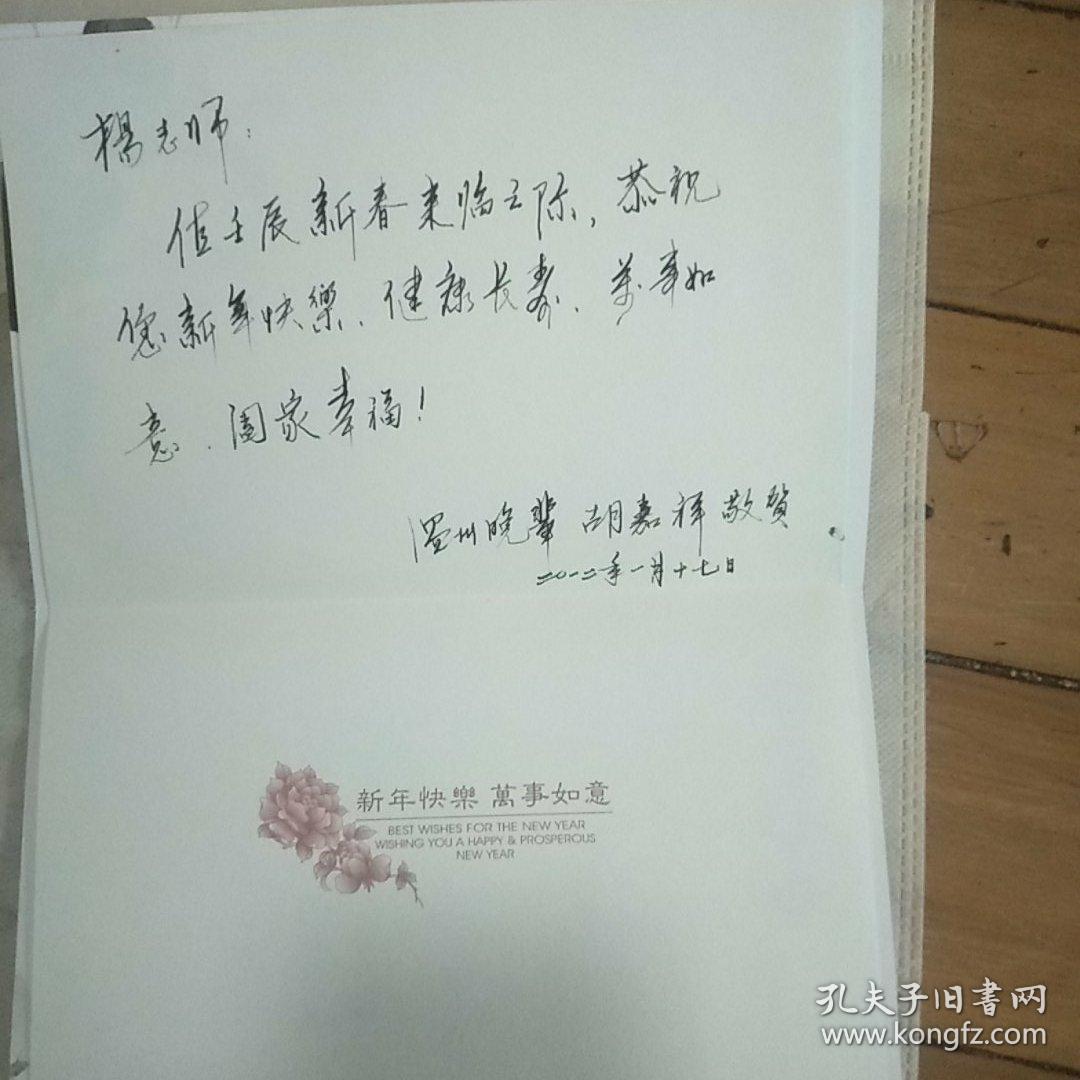 楊老师：
值壬辰新春来临之际，恭祝
您新年快樂、健康长寿、萬事如
意、阖家幸福！
温州晚辈 胡嘉祥敬贺
二〇一二年一月十七日
新年快樂 萬事如意
BEST WISHES FOR THE NEW YEAR
WISHING YOU A HAPPY & PROSPEROUS
NEW YEAR
孔夫子旧書网
www.kongfz.com